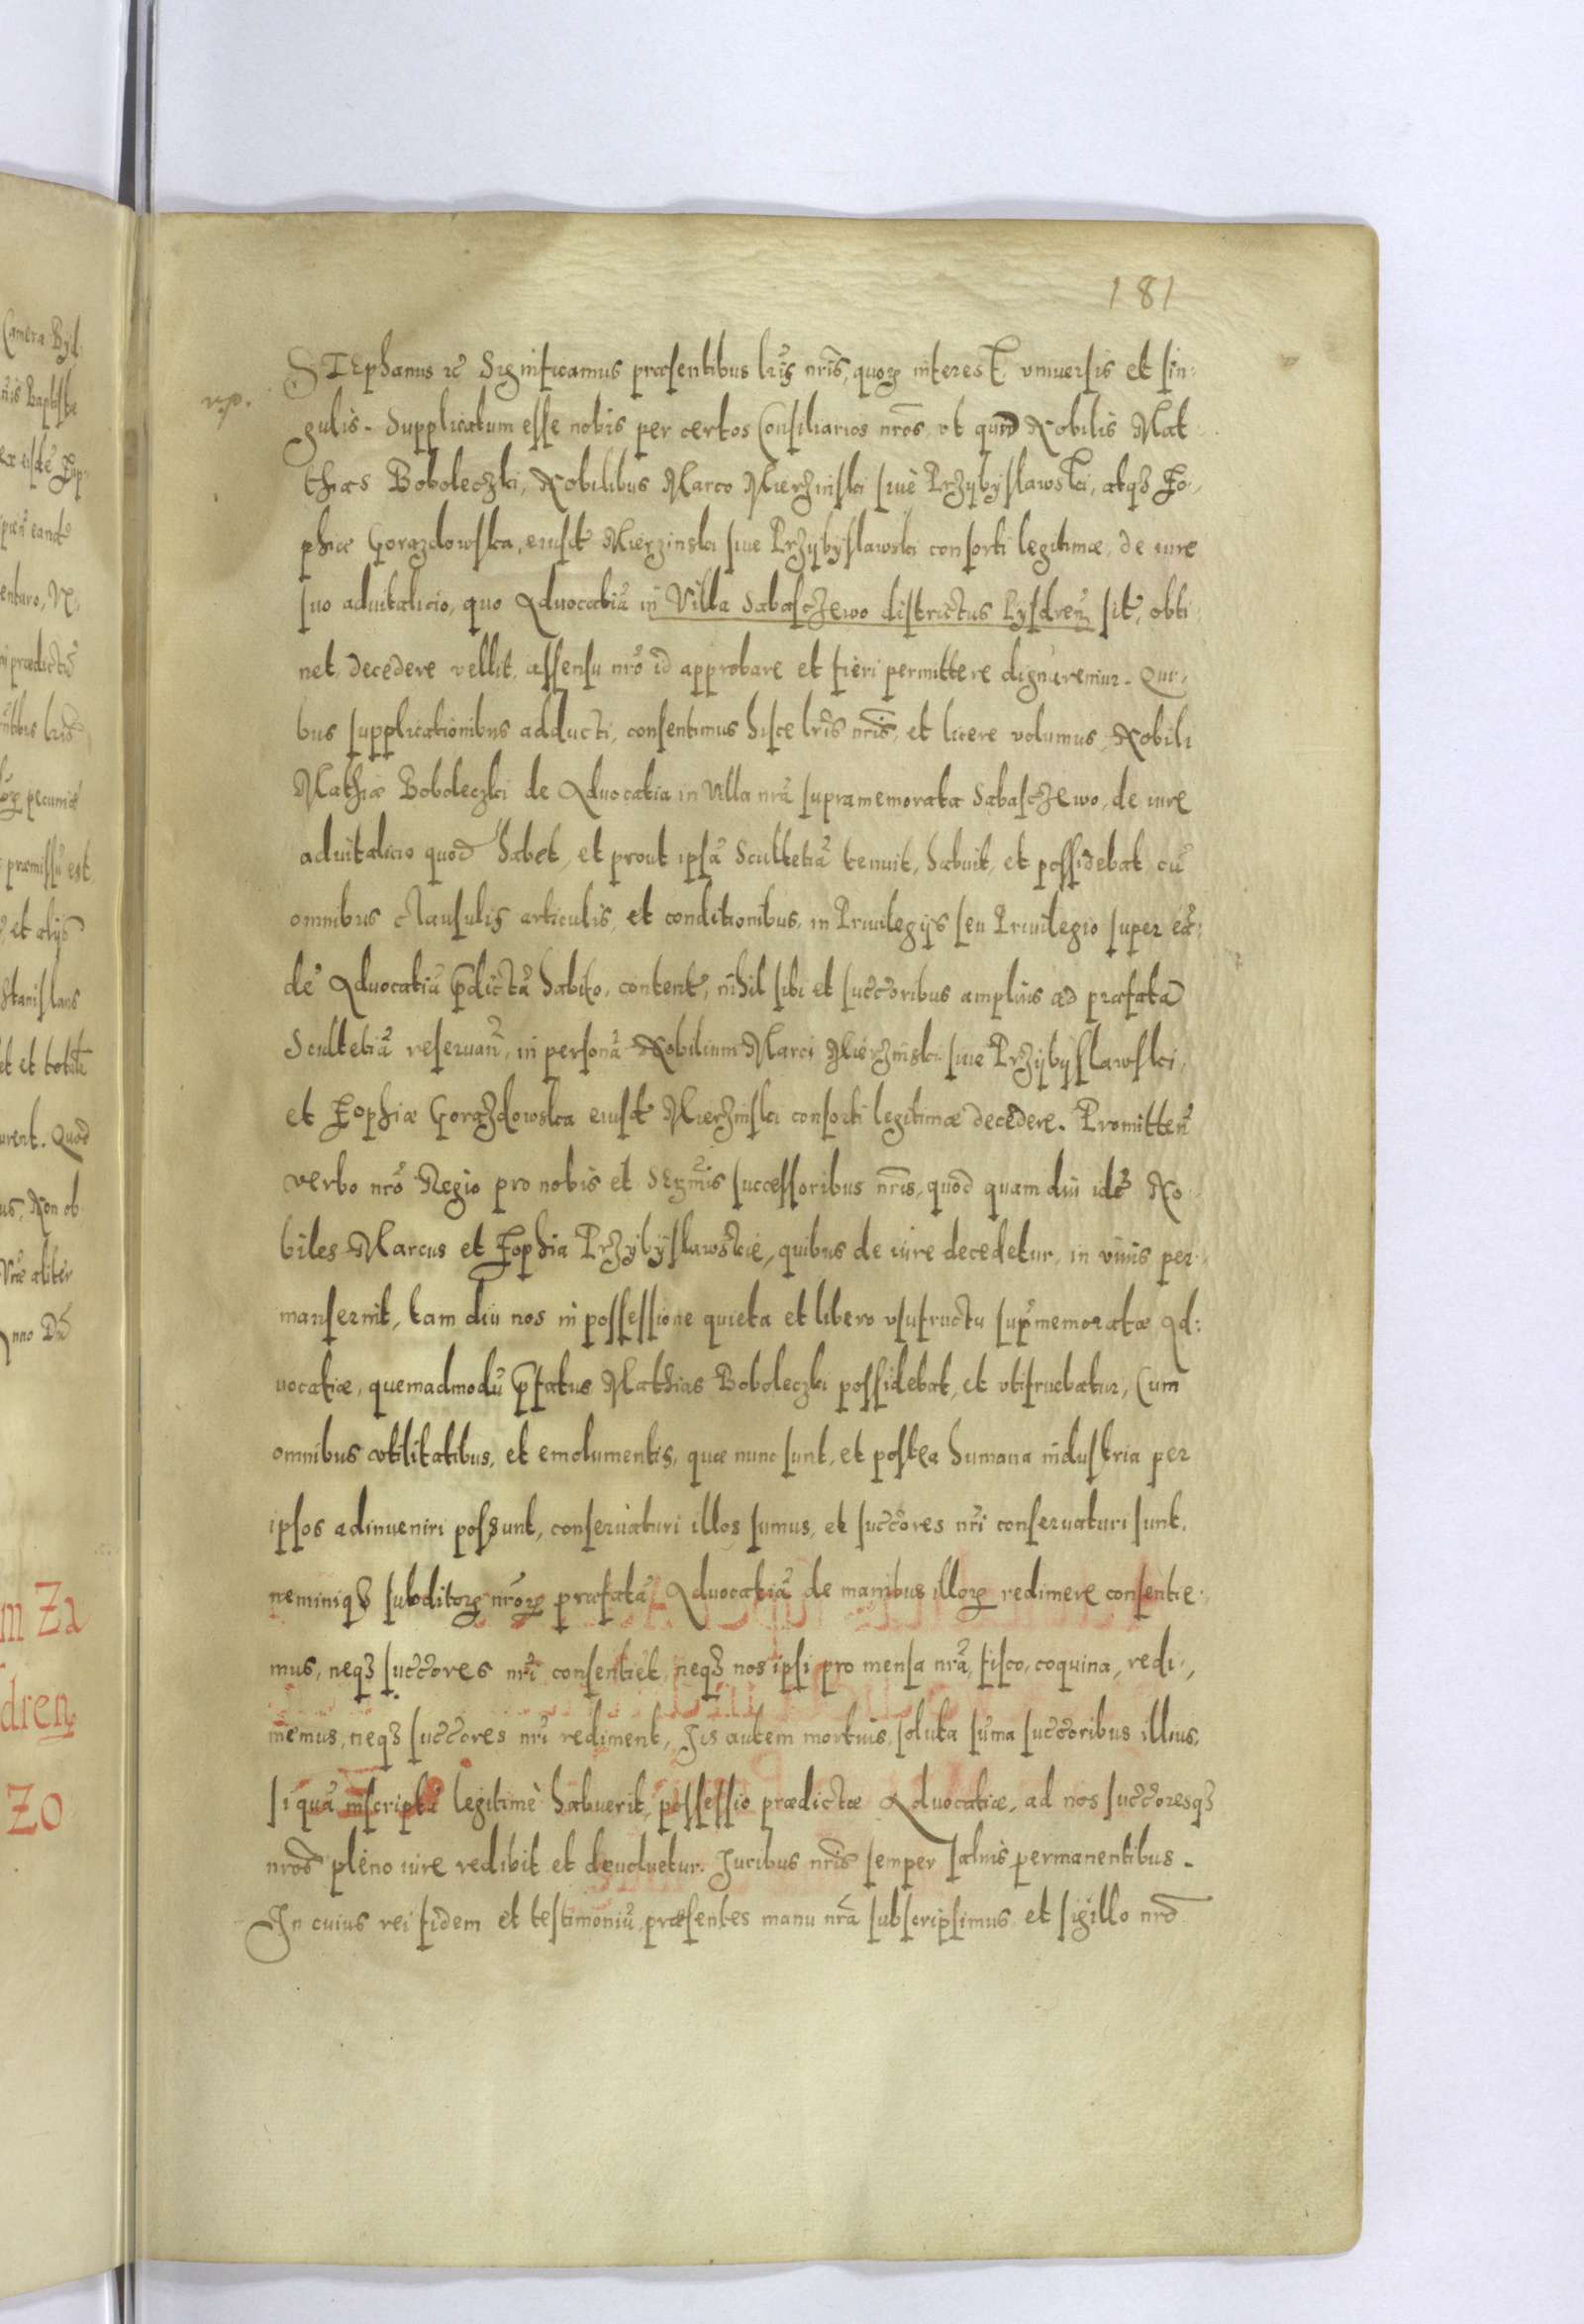 181
STEphanus etc Significamus præsentibus lris nris, quorum interest vniuersis et sin:
gulis. Supplicatum esse nobis per certos Consiliarios nros, vt quod Nobilis Mat
thias Boboleczki, Nobilibus Marco Mierzinski siue Przybyslawski, atq3 Zo,
phiæ Gorazdowska, eiusd Mierzinski siue Przybyslawski consorti legitimæ, de iure
suo aduitalicio, quo Aduocatiã in Villa Sabasczewo districtus Pysdreñ sit, obti
net, decedere vellit, assensu nrõ id approbare et fieri permittere dignaremur. Qui,
bus supplicationibus adducti, consentimus hisce lris nris, et licere volumus, Nobili
Mathiæ Boboleczki de Aduocatia in Villa nrã supramemorata Sabasczewo, de iure
aduitalicio quod habet, et prout ipsã Scultetiã tenuit, habuit, et possidebat, cũ
omnibus clausulis articulis, et conditionibus, in Priuilegijs seu Priuilegio super eã:
dẽ Aduocatiã pdictã habito, content, nihil sibi et succoribus amplius ad præfatã
Scultetiã reseruañ, in personã Nobilium Marci Mierzinski siue Przybyslawski,
et Zophiæ Gorazdowska eiusd Mierzinski consorti legitimæ decedere. Promitteñ
verbo nrõ Regio pro nobis et Sermis successoribus nris, quod quam diu idẽ No
biles Marcus et Zophia Przybyslawskie, quibus de iure decedetur, in viuis per,
manserint, tam diu nos in possessione quieta et libero vsufructu supmemoratæ Ad:
uocatiæ, quemadmodũ pfatus Mathias Boboleczki possidebat, et vtifruebatur, Cum
omnibus vtilitatibus, et emolumentis, quæ nunc sunt, et postea humana industria per
ipsos adinueniri possunt, conseruaturi illos sumus, et succores nri conseruaturi sunt,
neminiq3 subditorum nrorum præfatã Aduocatiã de manibus illorum redimere consentie,
mus, neq3 succores nri consentiẽt, neq3 nos ipsi pro mensa nrã, fisco, coquina, redi,
memus, neq3 succores nri rediment, Jis autem mortuis, soluta sũma succoribus illius,
si quã inscriptã legitimè habuerit, possessio prædictæ Aduocatiæ, ad nos succoresq3
nros pleno iure redibit et deuoluetur. Juribus nris semper saluis permanentibus.
In cuius rei fidem et testimoniũ, præsentes manu nrã subscripsimus et sigillo nrõ